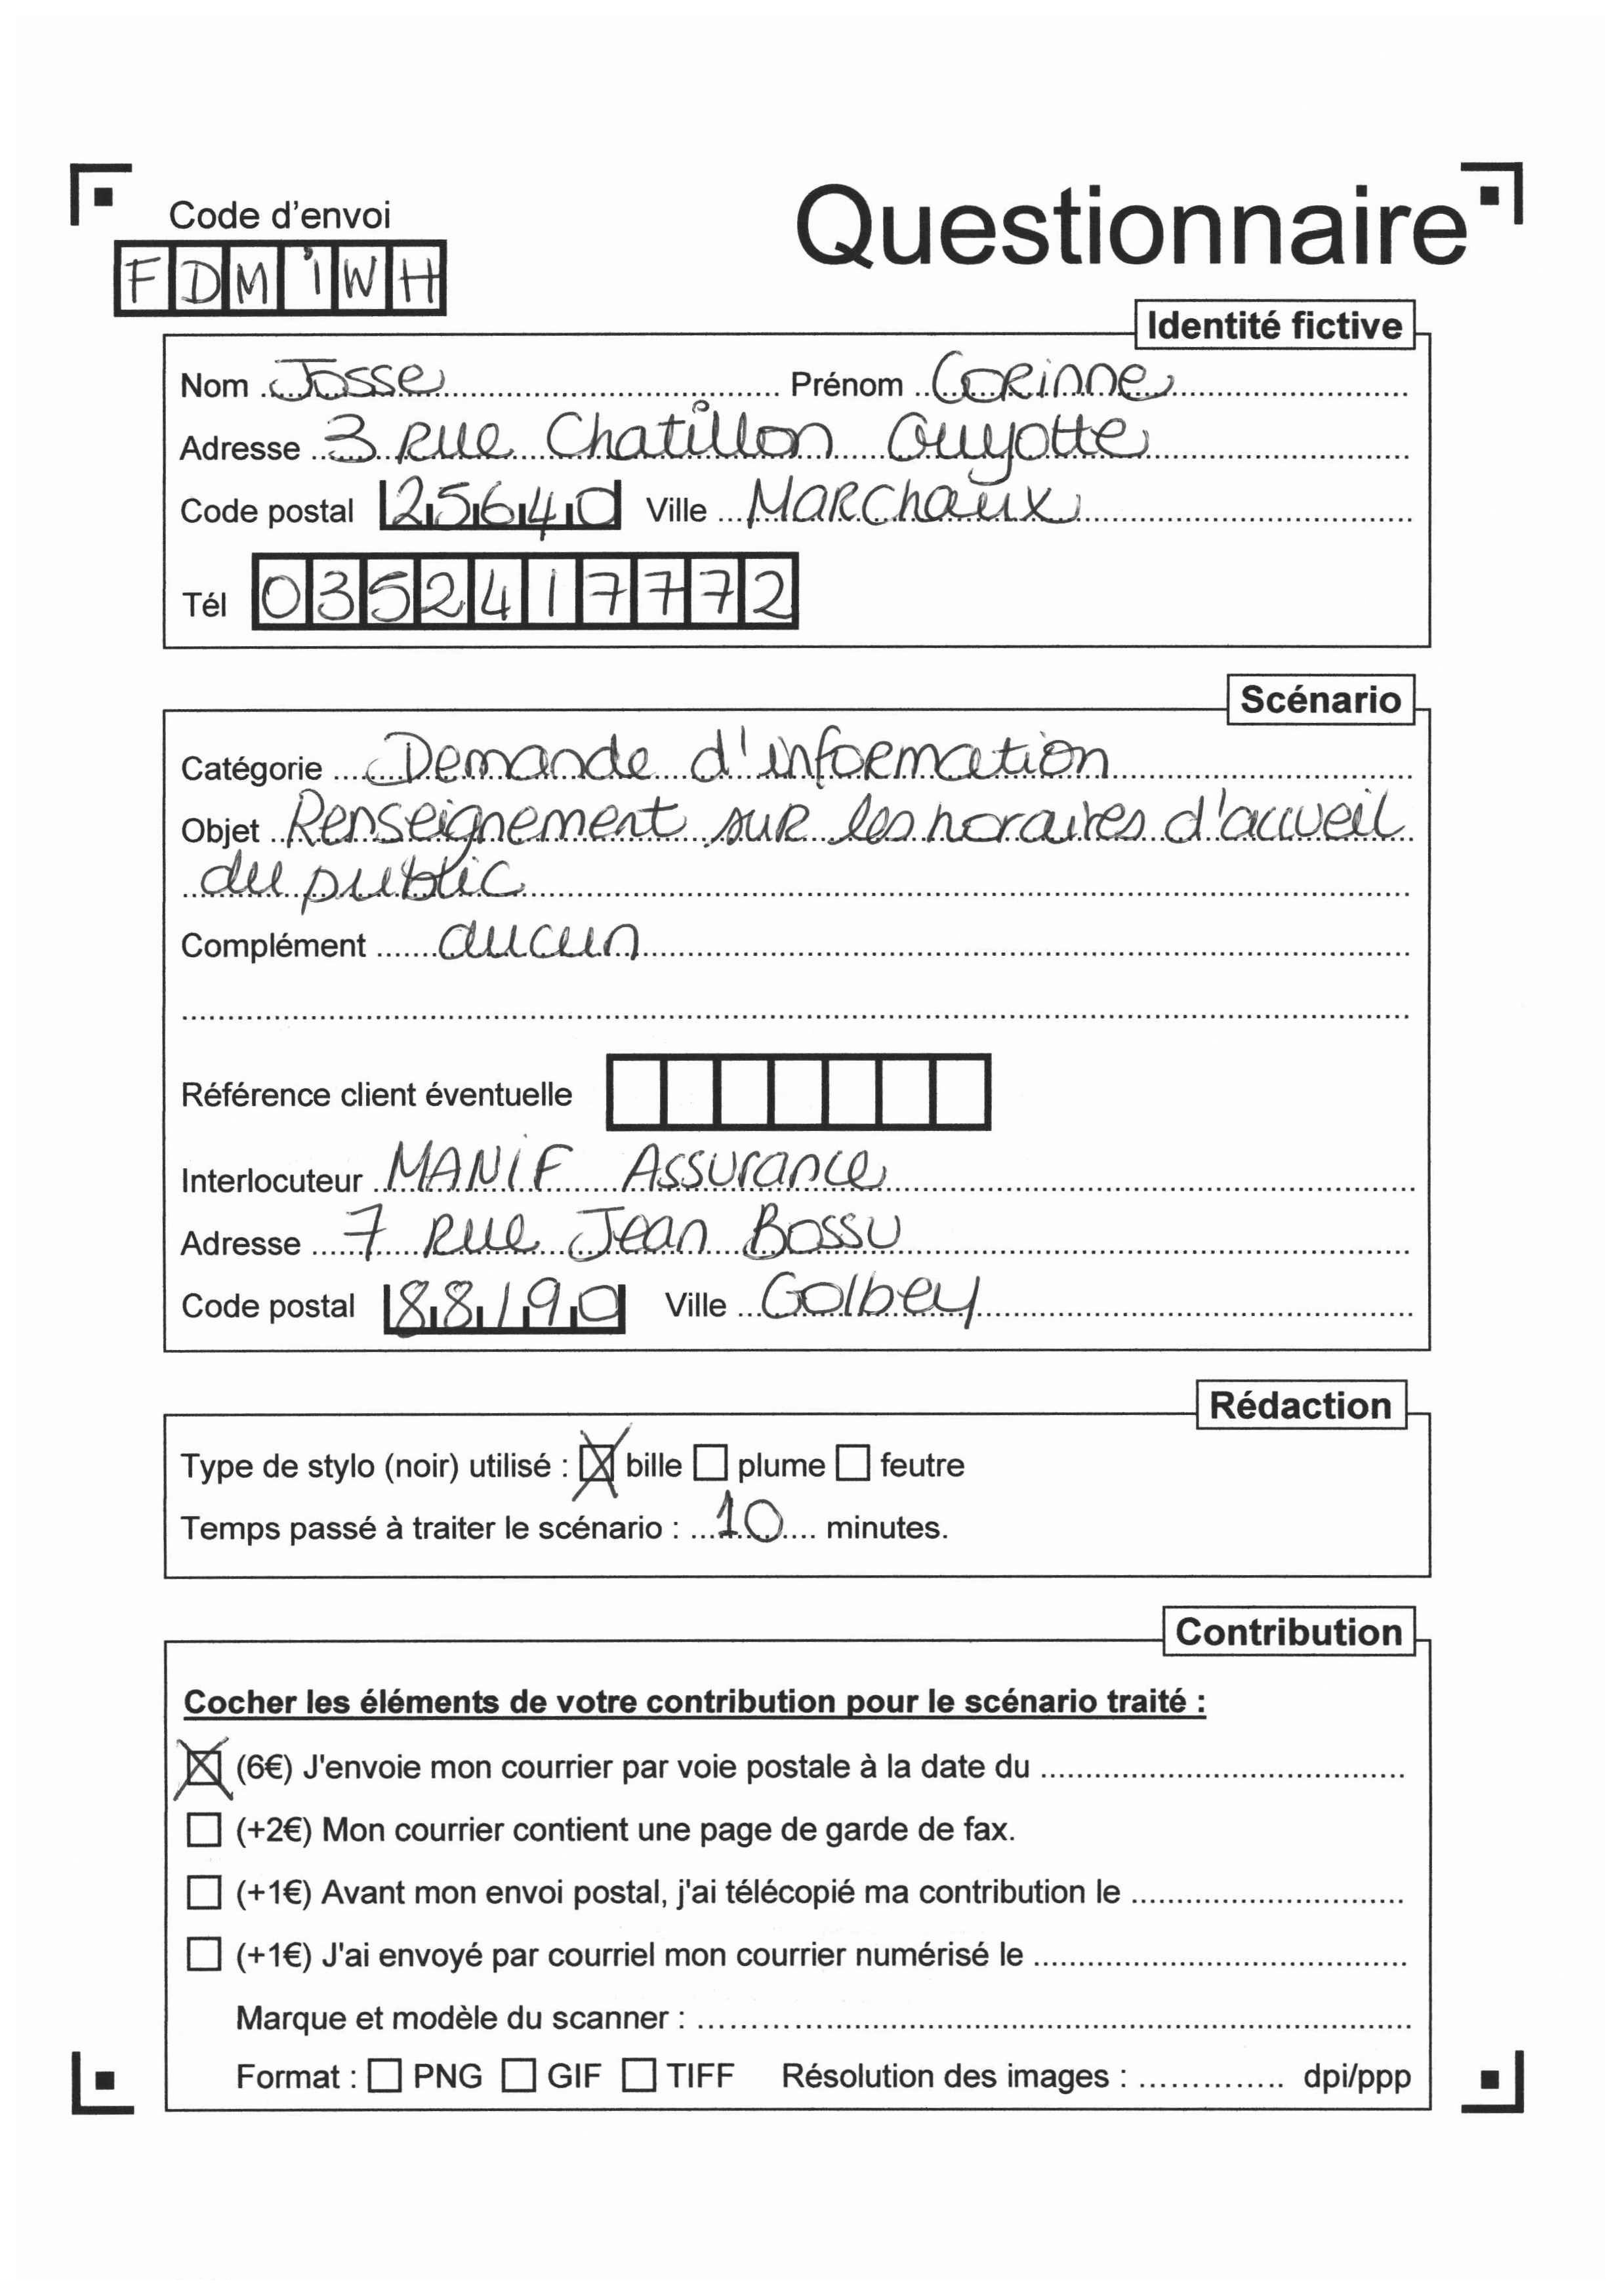 Code d'envoi
Questionnaire
FDMiWH
Identité fictive
Nom Josse Prénom Corinne
Adresse 3 Rue Chatillon Guyotte
Code postal 25640 Ville Marchaux
Tél 0352417772
Scénario
Catégorie Demande d'information
Objet Renseignement sur les horaires d'accueil
du public
Complément aucun
Référence client éventuelle
Interlocuteur MANiF Assurance
Adresse 7 Rue Jean Bossu
Code postal 88190 Ville Golbey
Rédaction
Type de stylo (noir) utilisé : bille plume feutre
Temps passé à traiter le scénario : 10 minutes.
Contribution
Cocher les éléments de votre contribution pour le scénario traité :
(6€) J'envoie mon courrier par voie postale à la date du
(+2€) Mon courrier contient une page de garde de fax.
(+1€) Avant mon envoi postal, j'ai télécopié ma contribution le
(+1€) J'ai envoyé par courriel mon courrier numérisé le
Marque et modèle du scanner :
Format : PNG GIF TIFF Résolution des images : dpi/ppp